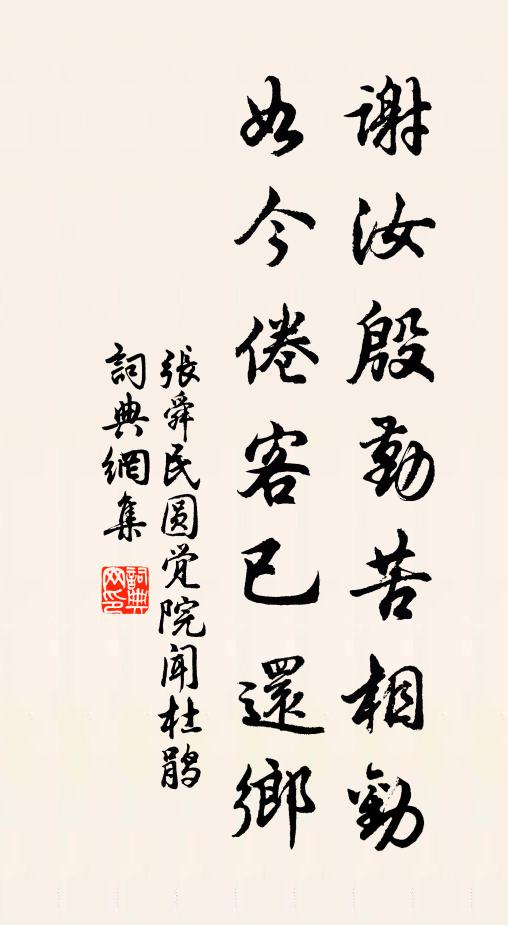 謝汝殷勤苦相勸
如今倦客已還鄉
張舜民圆觉院闻杜鹃
詞典網集
詞典网印